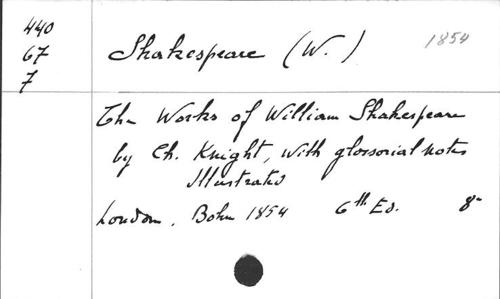 440
67
7
Shakespeare (W.) 1854
The Works of William Shakespeare
by Ch. Knight, with glossorial notes
Illustrated
London, Bohn 1854 6th Ed. 8-